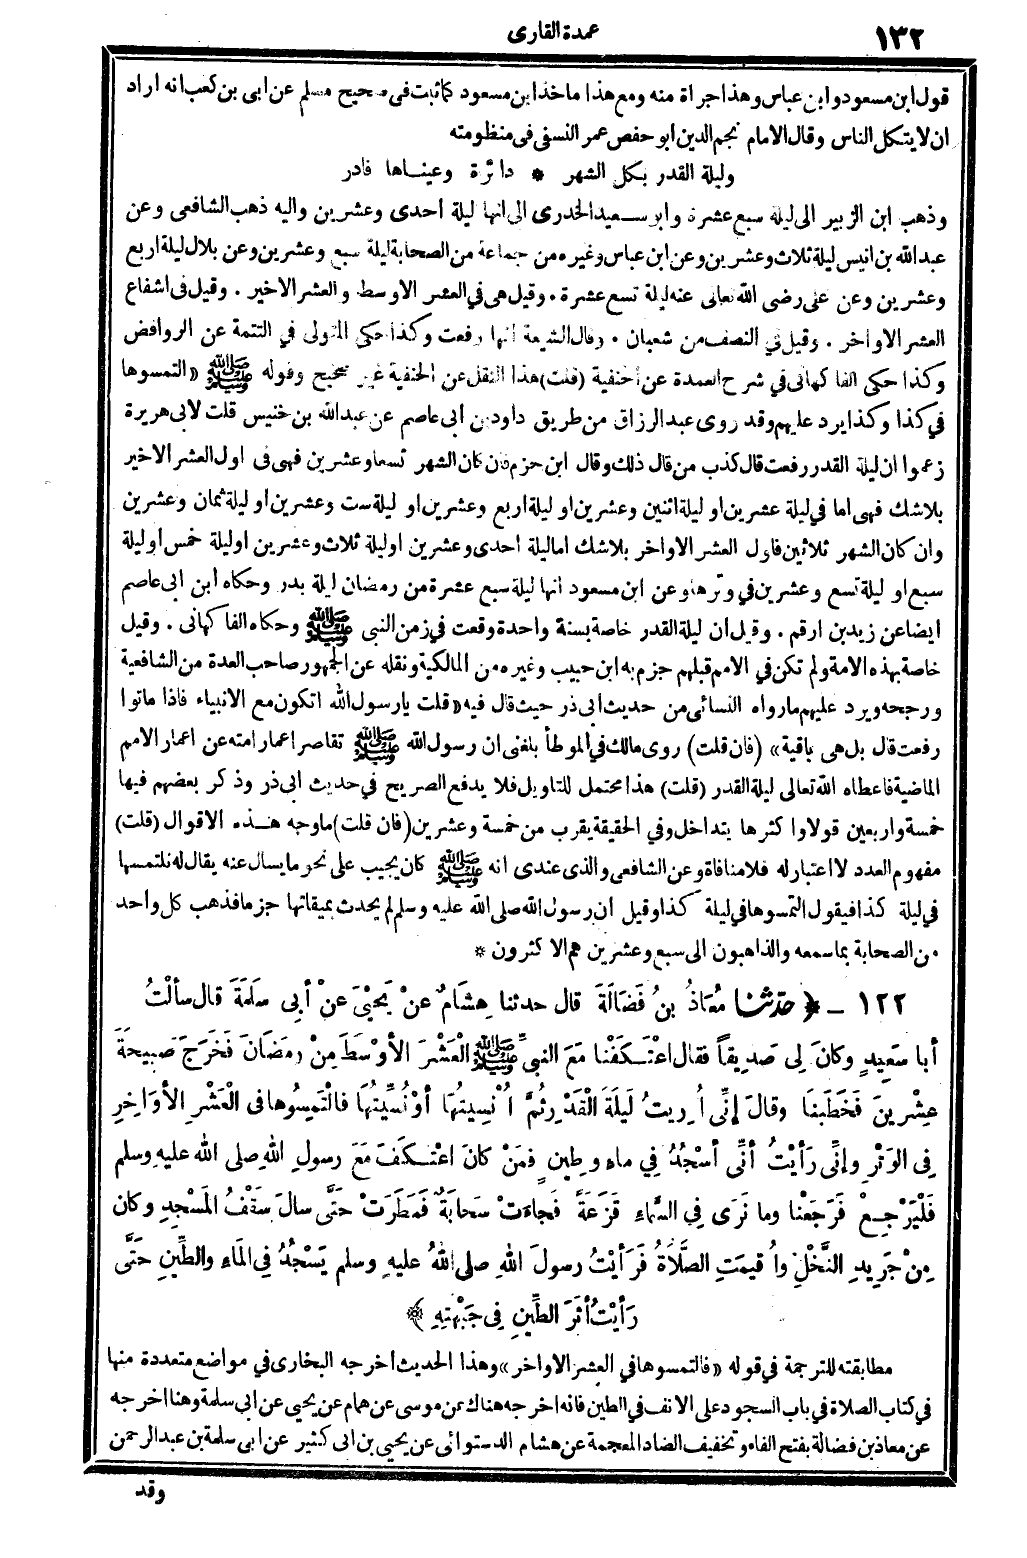 ١٣٢
عمدة القارى
قول ابن مسعود وابن عباس وهذا جراة منه ومع هذا ماخذ ابن مسعود كما ثبت فى صحيح مسلم عن ابى بن كعب انه اراد
ان لا يتكل الناس وقال الامام نجم الدين ابو حفص عمر النسفى فى منظومته
وليلة القدر بكل الشهر * دائرة وعيناها فادر
وذهب ابن الزبير الى ليلة سبع عشرة وابو سعيد الخدرى الى انها ليلة احدى وعشرين واليه ذهب الشافعى وعن
عبد الله بن انيس ليلة ثلاث وعشرين وعن ابن عباس وغيره من جماعة من الصحابة ليلة سبع وعشرين وعن بلال ليلة اربع
وعشرين وعن على رضى الله تعالى عنه ليلة تسع عشرة . وقيل هى فى العشر الاوسط والعشر الاخير . وقيل فى اشفاع
العشر الاواخر . وقيل فى النصف من شعبان . وقال الشيعة انها رفعت وكذا حكى المتولى فى التتمة عن الروافض
وكذا حكى الفاكهانى فى شرح العمدة عن الحنفية (قلت) هذا النقل عن الحنفية غير صحيح وقوله ﷺ «التمسوها
فى كذا وكذا يرد عليهم وقد روى عبد الرزاق من طريق داود بن ابى عاصم عن عبد الله بن خنيس قلت لابى هريرة
زعموا ان ليلة القدر رفعت قال كذب من قال ذلك وقال ابن حزم فان كان الشهر تسعا وعشرين فهى فى اول العشر الاخير
بلاشك فهى اما فى ليلة عشرين او ليلة اثنين وعشرين او ليلة اربع وعشرين او ليلة ست وعشرين او ليلة ثمان وعشرين
وان كان الشهر ثلاثين فاول العشر الاواخر بلاشك اما ليلة احدى وعشرين او ليلة ثلاث وعشرين او ليلة خمس او ليلة
سبع او ليلة تسع وعشرين فى وترها وعن ابن مسعود انها ليلة سبع عشرة من رمضان ليلة بدر وحكاه ابن ابى عاصم
ايضا عن زيد بن ارقم . وقيل ان ليلة القدر خاصة بسنة واحدة وقعت فى زمن النبى ﷺ وحكاه الفاكهانى . وقيل
خاصة بهذه الامة ولم تكن فى الامم قبلهم جزم به ابن حبيب وغيره من المالكية ونقله عن الجمهور صاحب العدة من الشافعية
ورجحه ويرد عليهم ما رواه النسائى من حديث ابى ذر حيث قال فيه «قلت يا رسول الله اتكون مع الانبياء فاذا ماتوا
رفعت قال بل هى باقية» (فان قلت) روى مالك فى الموطأ بلغنى ان رسول الله ﷺ تقاصر اعمار امته عن اعمار الامم
الماضية فاعطاه الله تعالى ليلة القدر (قلت) هذا محتمل للتاويل فلا يدفع الصريح فى حديث ابى ذر وذكر بعضهم فيها
خمسة واربعين قولا واكثرها يتداخل وفى الحقيقة يقرب من خمسة وعشرين (فان قلت) ما وجه هذه الاقوال (قلت)
مفهوم العدد لا اعتبار له فلا منافاة وعن الشافعى والذى عندى انه ﷺ كان يجيب على نحو ما يسال عنه يقال له نلتمسها
فى ليلة كذا فيقول التمسوها فى ليلة كذا وقيل ان رسول الله صلى الله عليه وسلم لم يحدث بميقاتها جزما فذهب كل واحد
من الصحابة بما سمعه والذاهبون الى سبع وعشرين هم الاكثرون *
١٢٢ - ﴿ حدثنا مُعَاذُ بنُ فَضَالَةَ قال حدثنا هِشَامٌ عنْ يَحْيَى عنْ أبى سَلَمَةَ قال سألْتُ
أبا سَعِيدٍ وكانَ لِى صَدِيقاً فقال اعْتَكَفْنَا مَعَ النبىِّ ﷺ الْعَشْرَ الأوْسَطَ مِنْ رمَضَانَ فَخَرَجَ صَبِيحَةَ
عِشْرِينَ فَخَطَبنَا وقالَ إنِّى أُرِيتُ لَيلَةَ الْقَدْرِ ثُمَّ أُنْسِيتُهَا أوْ نُسِّيتُهَا فالْتَمِسُوها فى الْعَشْرِ الأوَاخِرِ
فِى الوَتْرِ وإنِّى رَأيْتُ أنِّى أسْجُدُ فِى ماءٍ وطِينٍ فمَنْ كانَ اعْتَكَفَ مَعَ رسولِ اللهِ صلى الله عليه وسلم
فَلْيَرْجِعْ فَرَجَعْنا وما نَرَى فِى السَّماءِ قَزَعَةً فَجاءَتْ سَحابَةٌ فَمَطَرَتْ حَتَّى سالَ سَقْفُ المَسْجِدِ وكان
مِنْ جَرِيدِ النَّخْلِ وأُقِيمَتِ الصَّلاَةُ فَرَأيْتُ رسولَ اللهِ صلى اللهُ عليهِ وسلم يَسْجُدُ فِى المَاءِ والطِّينِ حَتَّى
رَأيْتُ أثَرَ الطِّينِ فِى جَبْهَتِهِ ﴾
مطابقته للترجمة فى قوله «فالتمسوها فى العشر الاواخر» وهذا الحديث اخرجه البخارى فى مواضع متعددة منها
فى كتاب الصلاة فى باب السجود على الانف فى الطين فانه اخرجه هناك عن موسى عن همام عن يحيى عن ابى سلمة وهنا اخرجه
عن معاذ بن فضالة بفتح الفاء وتخفيف الضاد المعجمة عن هشام الدستوائى عن يحيى بن ابى كثير عن ابى سلمة بن عبد الرحمن
وقد